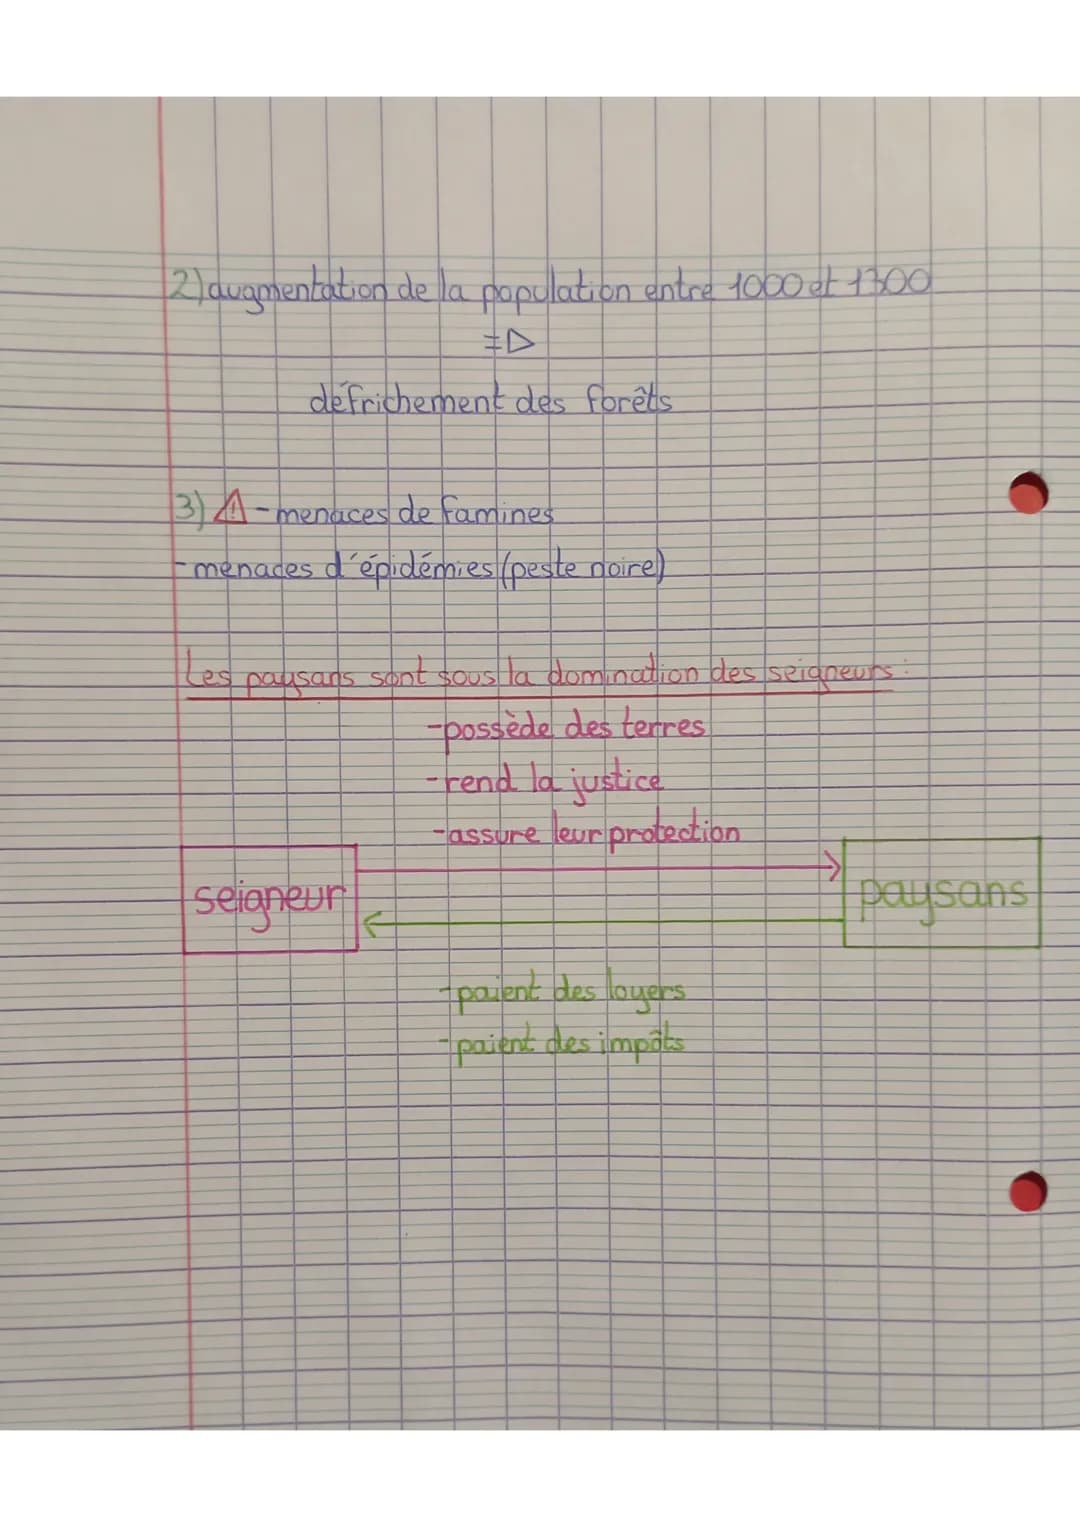 2) augmentation de la population entre 1000 et 1300
=>
défrichement des forêts
3) ⚠ - menaces de famines
- menaces d'épidémies (peste noire)
Les paysans sont sous la domination des seigneurs :
- possède des terres
- rend la justice
- assure leur protection
seigneur
paysans
- paient des loyers
- paient des impôts